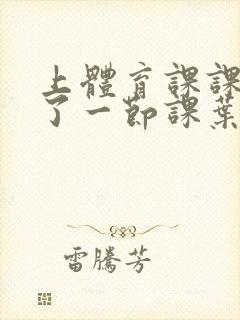 上體育課課
了一節課葉
雷騰芳